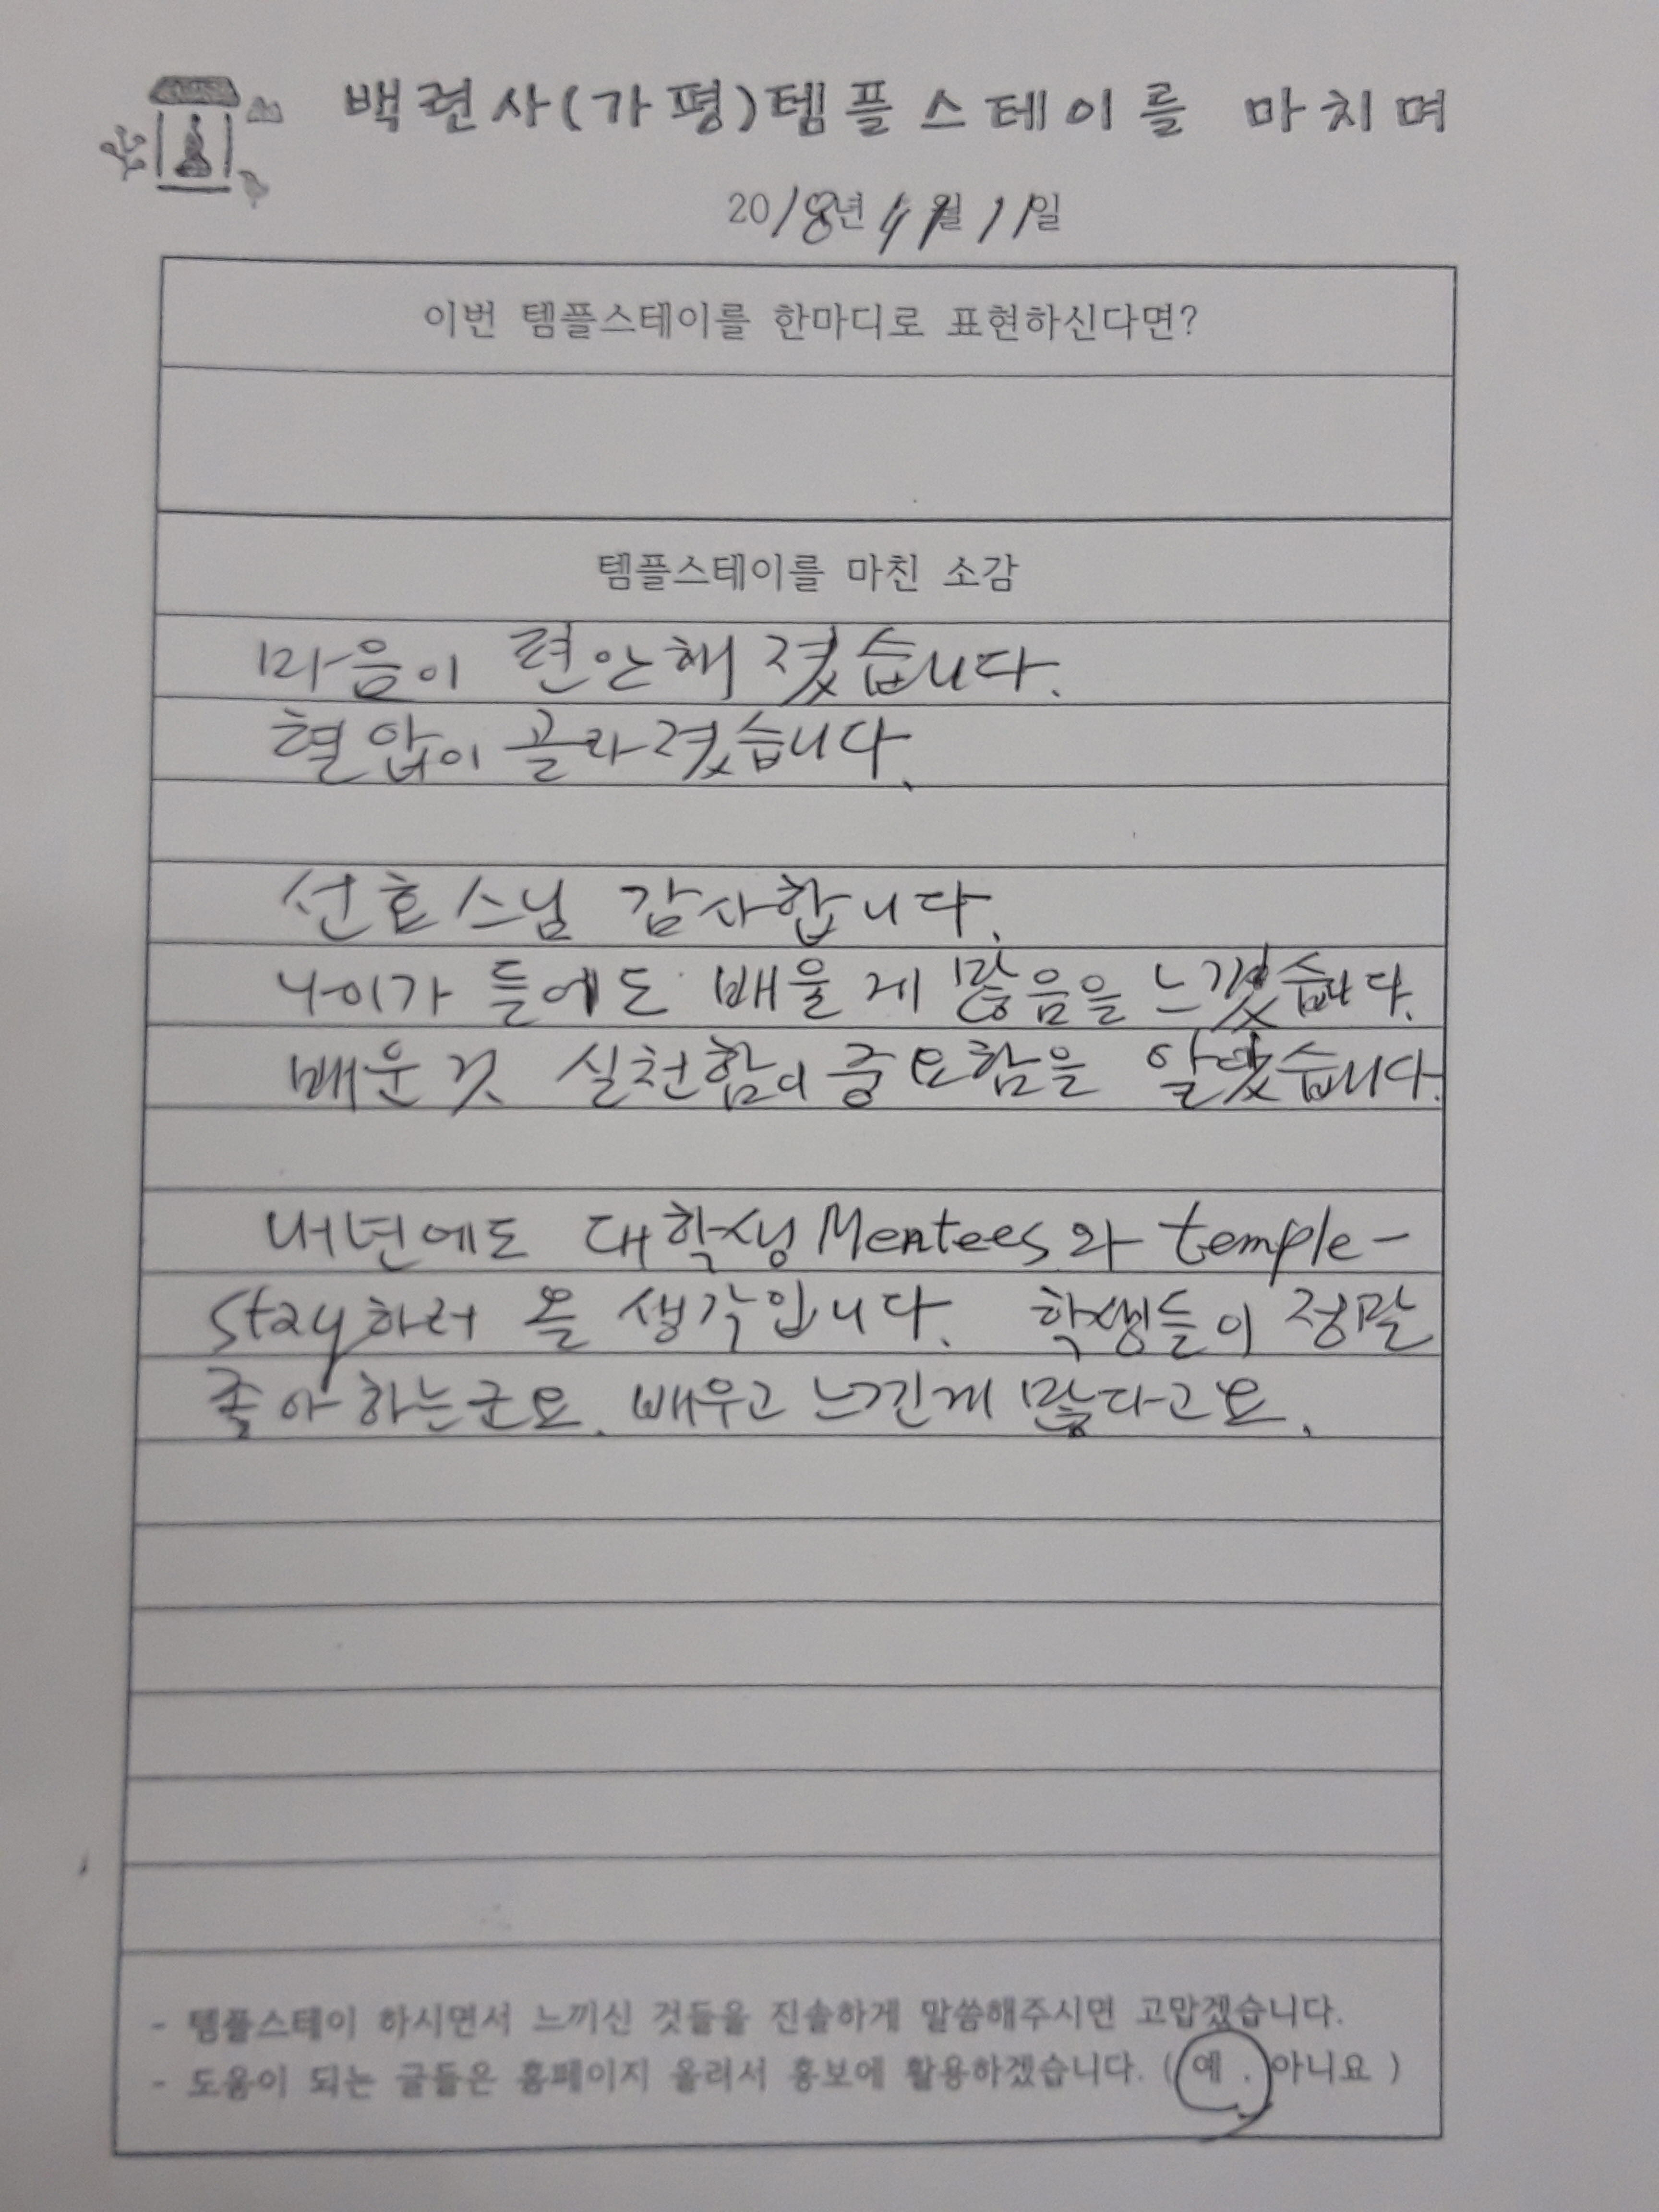 백련사(가평)템플스테이를 마치며
2018년 11월 11일
이번 템플스테이를 한마디로 표현하신다면?
템플스테이를 마친 소감
마음이 편안해 졌습니다.
혈압이 골라졌습니다.
선효스님 감사합니다.
나이가 들에도 배울 게 많음을 느꼈습니다.
배운것 실천함이 중요함을 알았습니다.
내년에도 대학생 Mentees와 temple-
stay하러 올 생각입니다. 학생들이 정말
좋아하는군요. 배우고 느낀게 많다고요.
- 템플스테이 하시면서 느끼신 것들을 진솔하게 말씀해주시면 고맙겠습니다.
- 도움이 되는 글들은 홈페이지 올려서 홍보에 활용하겠습니다. ( 예 . 아니요 )